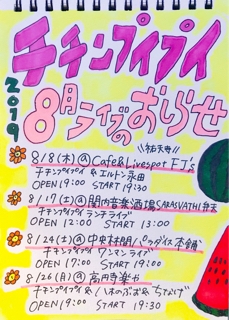 チチンプイプイ
2019
8月ライブのおしらせ
\\祐天寺//
8/8(木)@Cafe&Livespot FJ's
チチンプイプイ & エルトン永田
OPEN 19:00 START 19:30
8/17(土)@関内音楽酒場SARASVATHI弁天
チチンプイプイ ランチライブ
OPEN 12:00 START 13:00
8/24(土)@中央林間パラダイス本舗
チチンプイプイ ワンマンライブ
OPEN 17:00 START 19:00
8/26(月)@高円寺楽や
チチンプイプイ &
OPEN 19:00 START 19:30